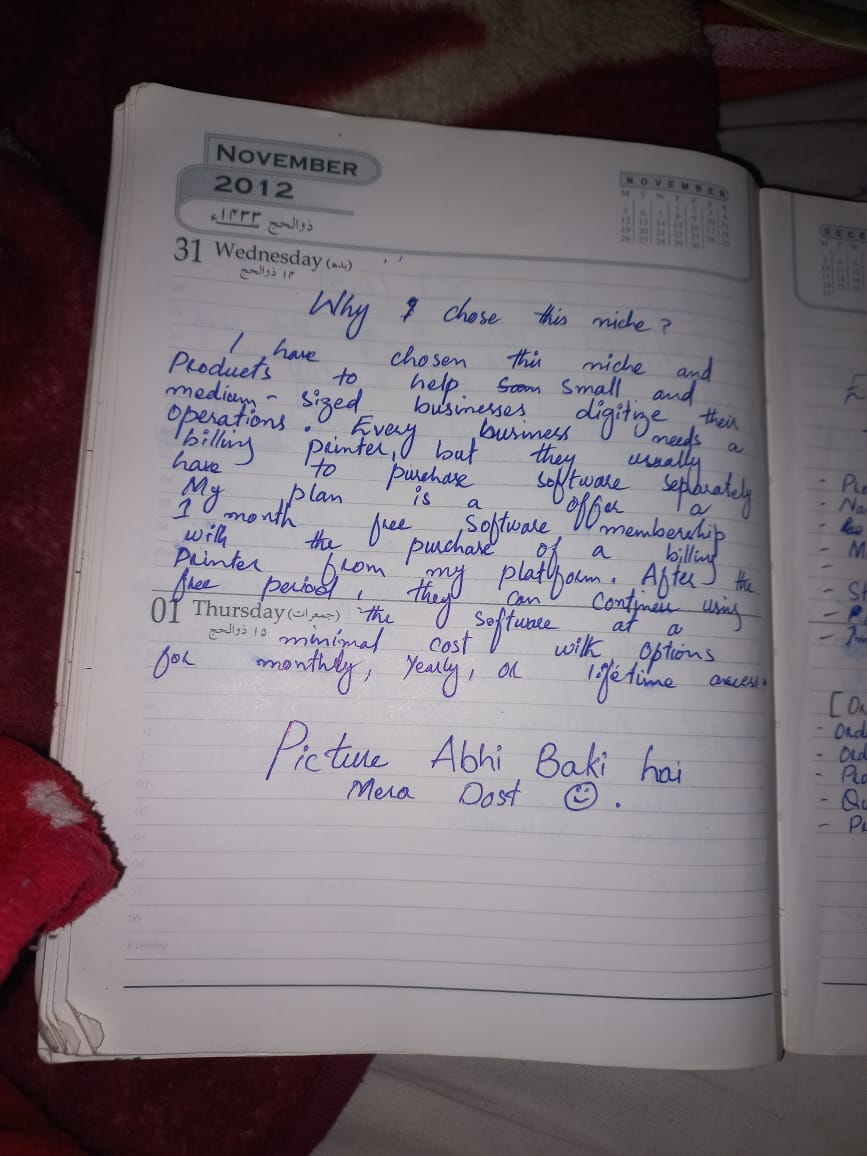 NOVEMBER
2012
ذوالحج ۱۴۳۳ء
NOVEMBER
M T W T F S S
31 Wednesday (بدھ)
۱۴ ذوالحج
Why I chose this niche?
I have chosen this niche and
Products to help small and
medium-sized businesses digitize their
operations. Every business needs a
billing printer, but they usually
have to purchase software separately
My plan is a offer a
1 month free software membership
with the purchase of a billing
Printer from my platform. After the
free period, they can continew using
01 Thursday (جمعرات) the software at a
۱۵ ذوالحج minimal cost with options
for monthly, Yearly, or lifetime access.
Picture Abhi Baki hai
Mera Dost ☺.
01
02
03
04
05
06
Evening
DECE